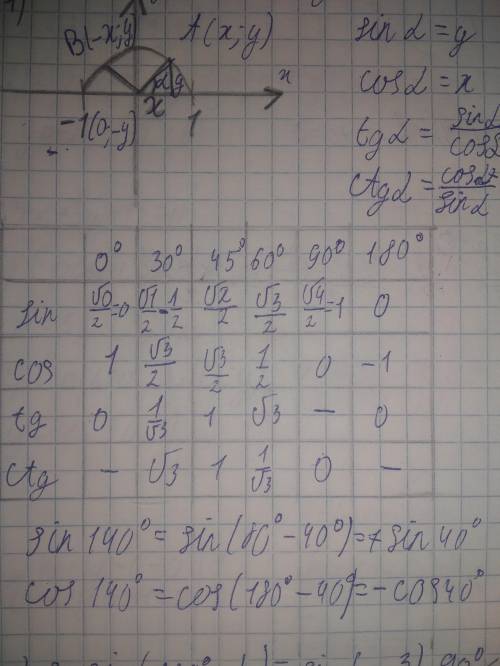 B(-x;y) A(x;y) sin α = y
x
cos α = x
α y
x
-1 (0;-y) 1 tg α = sin α / cos α
ctg α = cos α / sin α
0° 30° 45° 60° 90° 180°
sin √0/2=0 √1/2=1/2 √2/2 √3/2 √4/2=1 0
cos 1 √3/2 √3/2 1/2 0 -1
tg 0 1/√3 1 √3 — 0
ctg — √3 1 1/√3 0 —
sin 140° = sin(180° - 40°) = + sin 40°
cos 140° = cos(180° - 40°) = - cos 40°